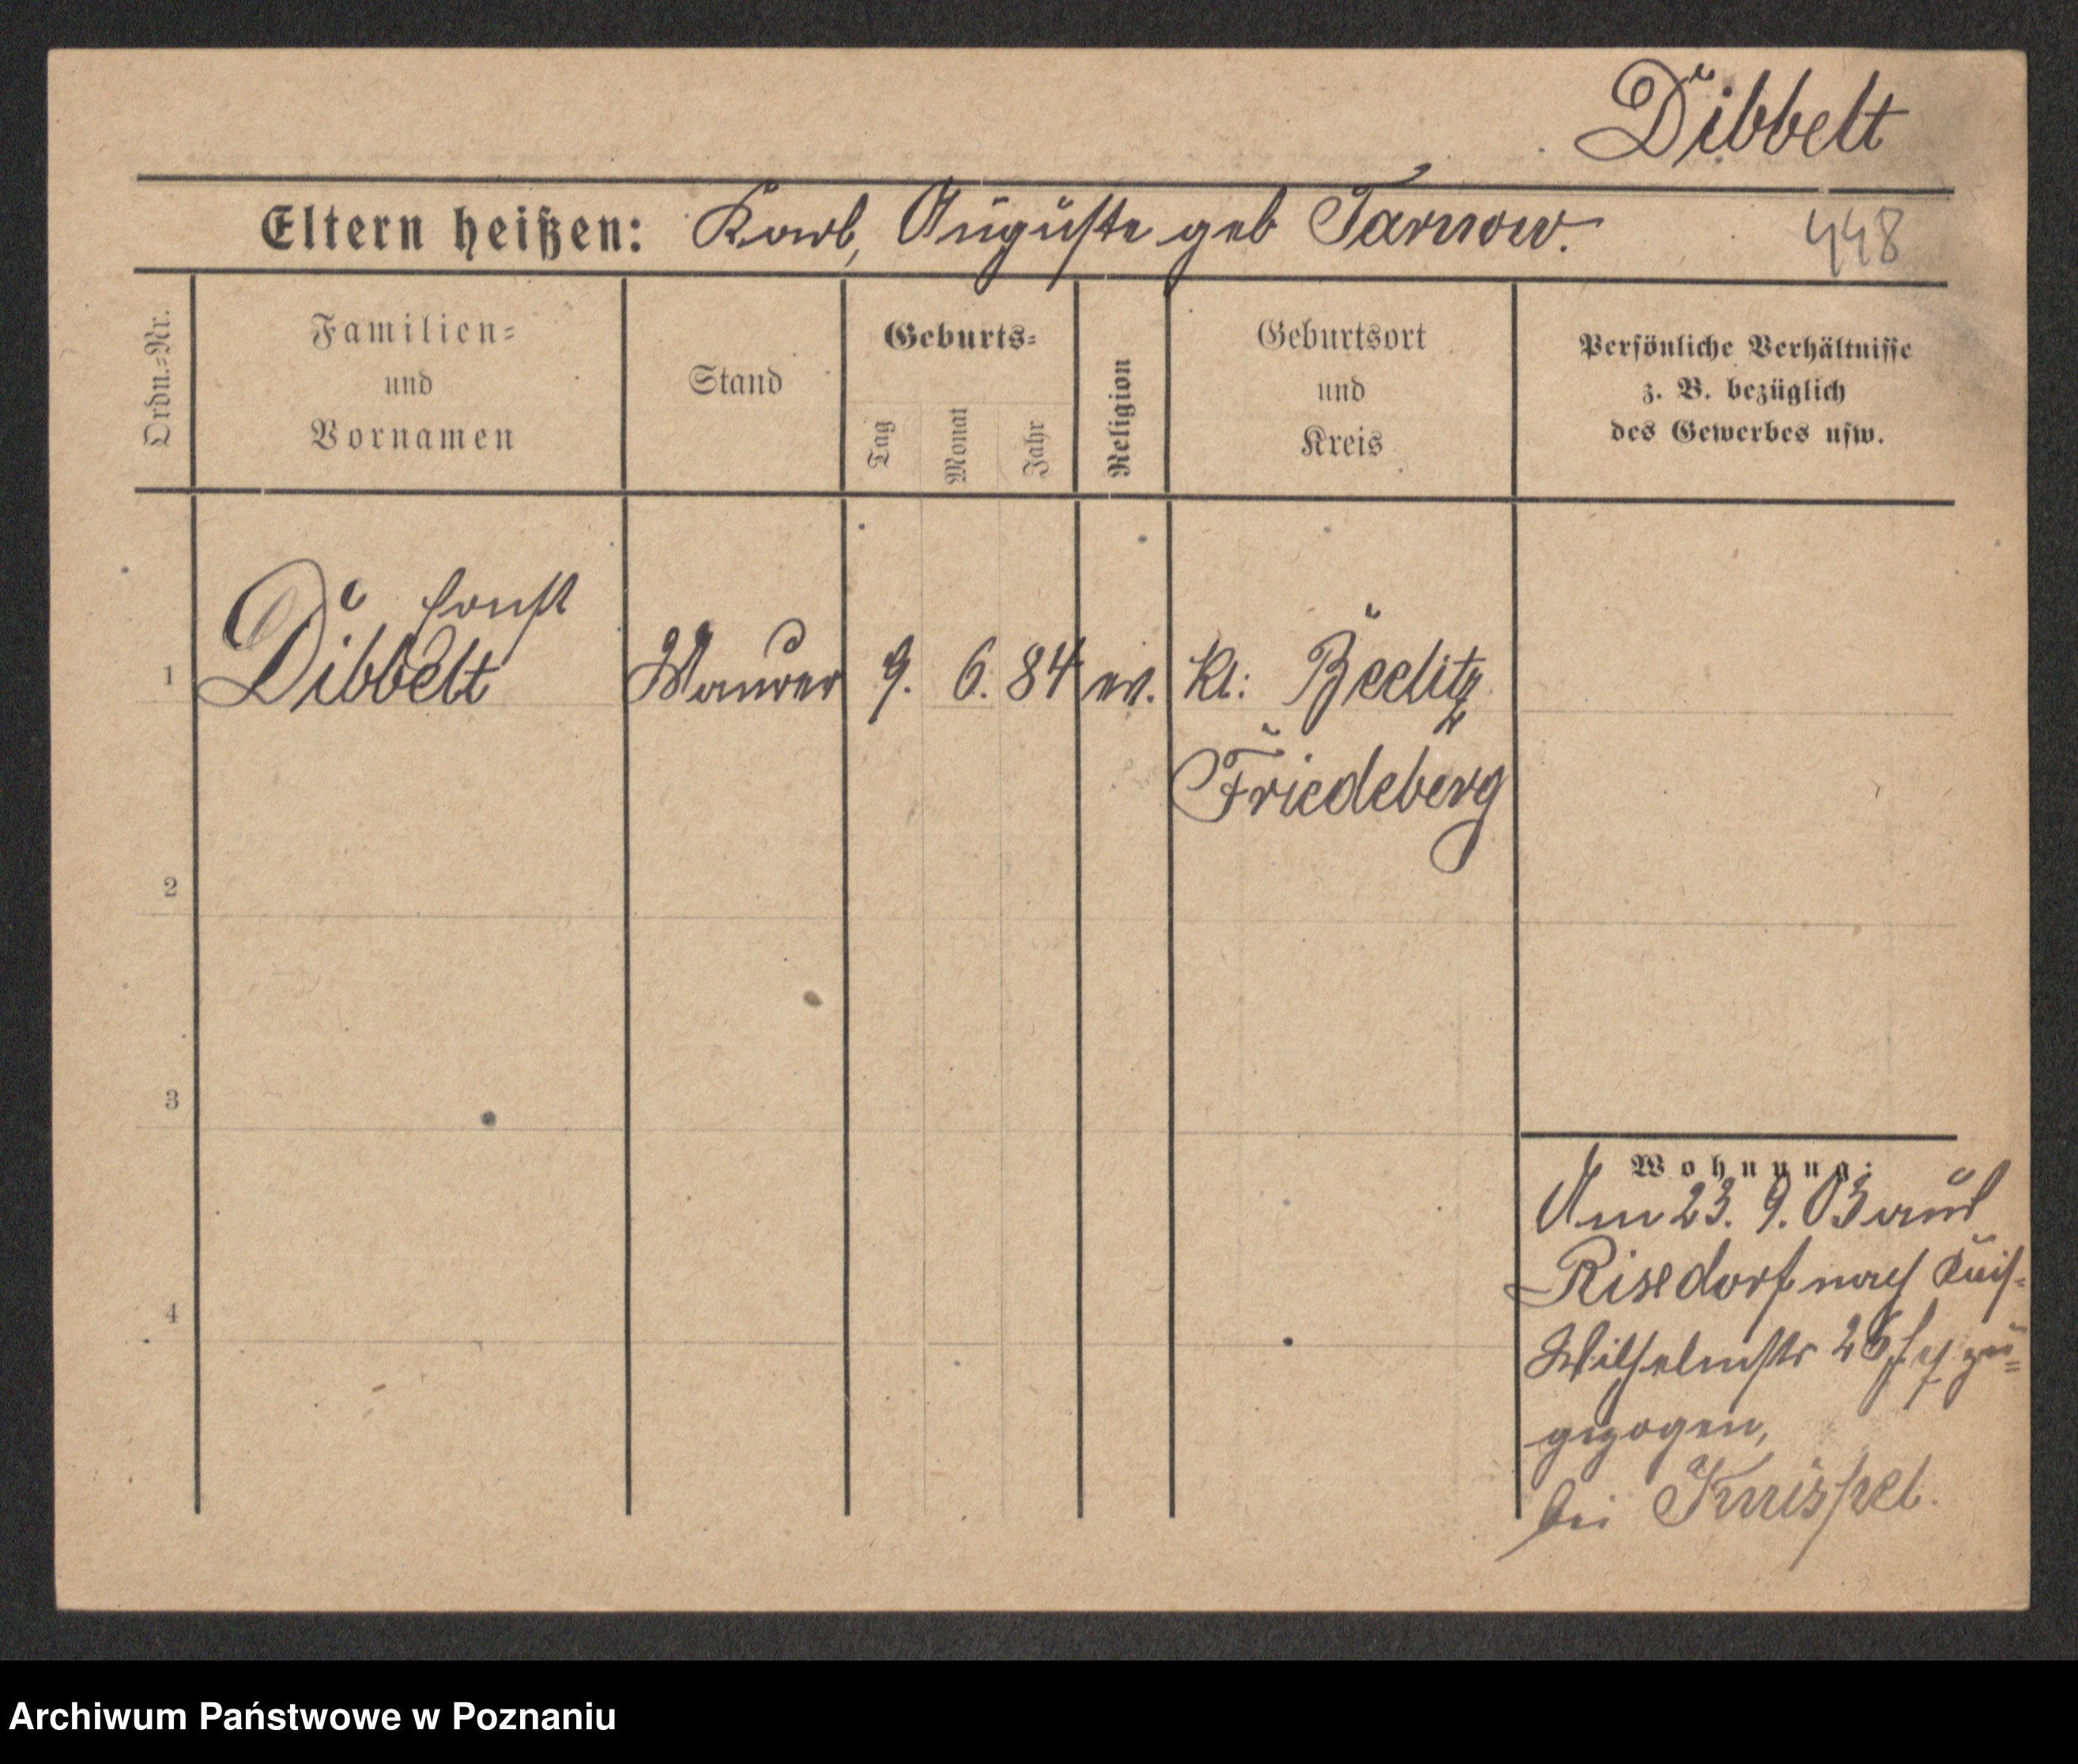 Dibbelt
Eltern heißen: Karl, Auguste geb Tarnow.
448
Ordn.=Nr.
Familien=
und
Vornamen
Stand
Geburts=
Tag
Monat
Jahr
Religion
Geburtsort
und
Kreis
Persönliche Verhältnisse
z. B. bezüglich
des Gewerbes usw.
1 Dibbelt Maurer 9. 6. 84 ev. Kl: Beelitz
Friedeberg
2
3
4
Wohnung:
Am 23. 9. 03 aus
Risedorf nach
Wilhelmstr 26 zu=
gezogen,
bei Knispel.
Archiwum Państwowe w Poznaniu